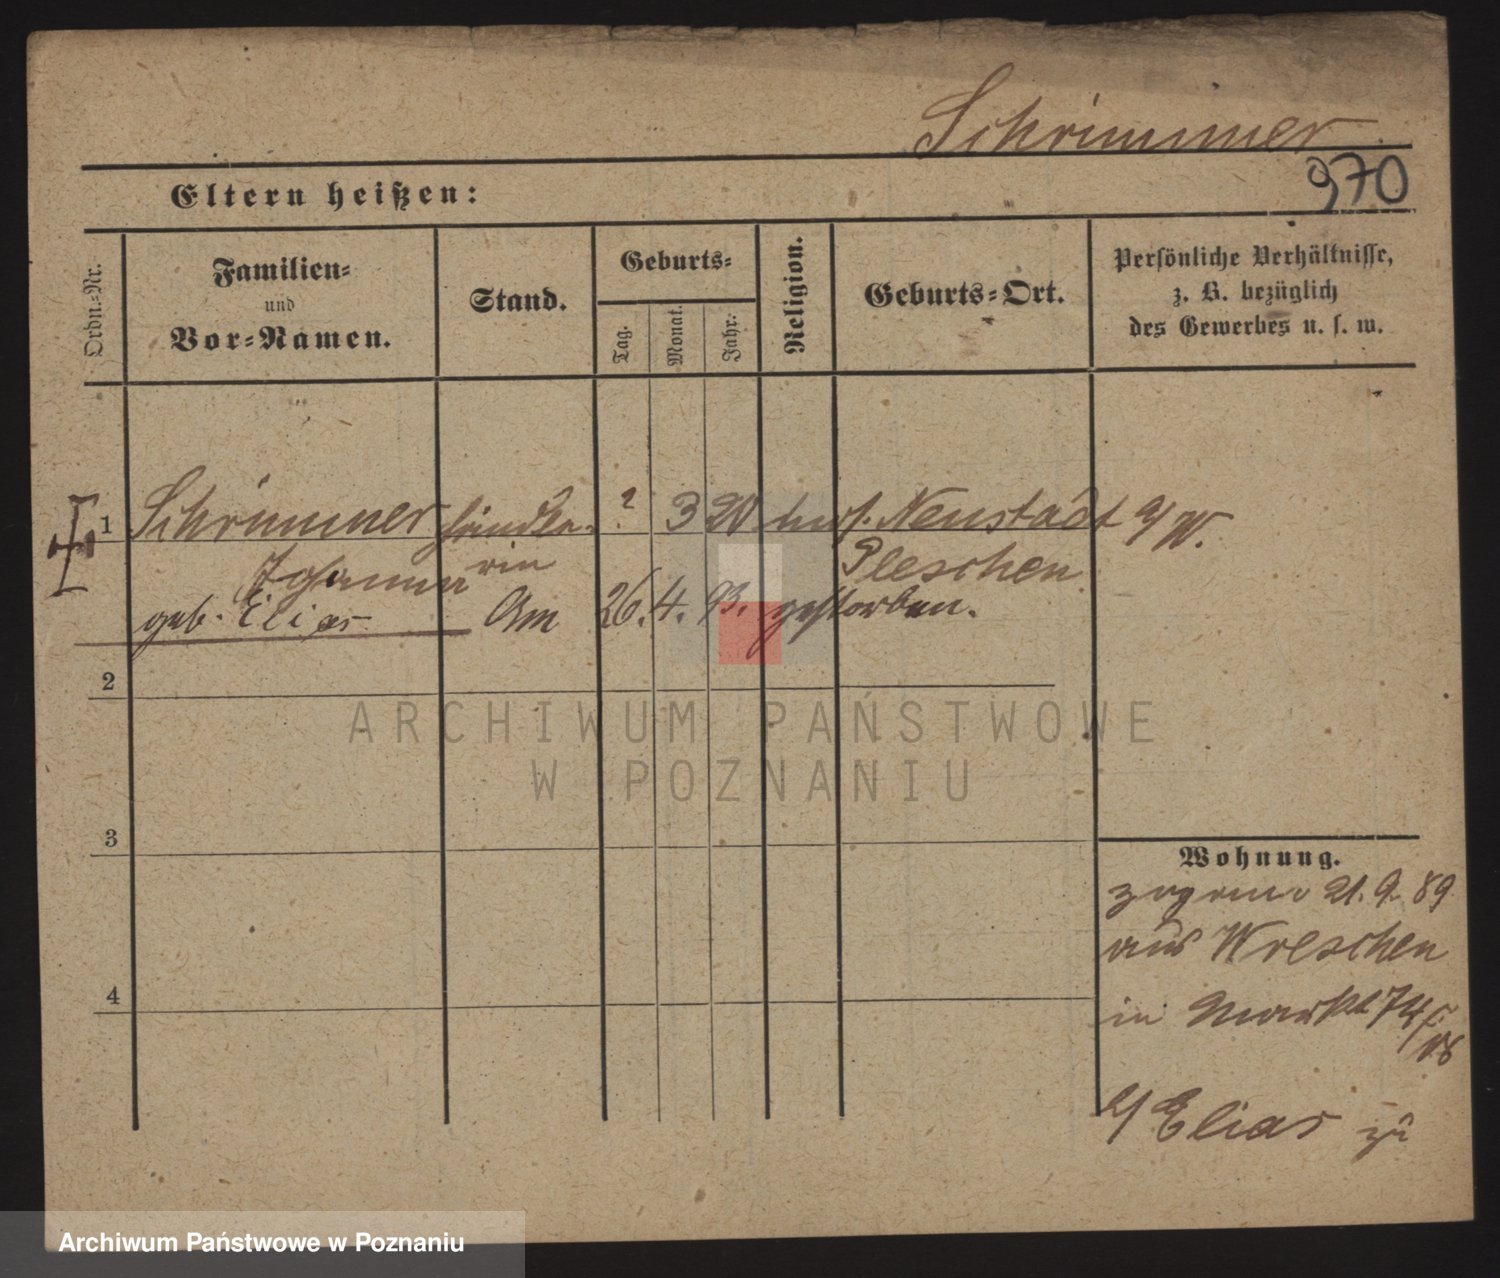 Schrimmer
970
Eltern heißen:
Ordn.=Nr.
Familien=
und
Vor=Namen.
Stand.
Geburts=
Tag.
Monat.
Jahr.
Religion.
Geburts=Ort.
Persönliche Verhältnisse,
z. B. bezüglich
des Gewerbes u. s. w.
1 Schrimmer Händle- ? 3 20 Neustadt a/W.
Johanna rin Pleschen
geb. Elias Am 26. 4. 93. gestorben.
2
ARCHIWUM PAŃSTWOWE
W POZNANIU
3
Wohnung.
21. 9. 89
aus Wreschen
4
in Markt 74
b/ Elias
Archiwum Państwowe w Poznaniu